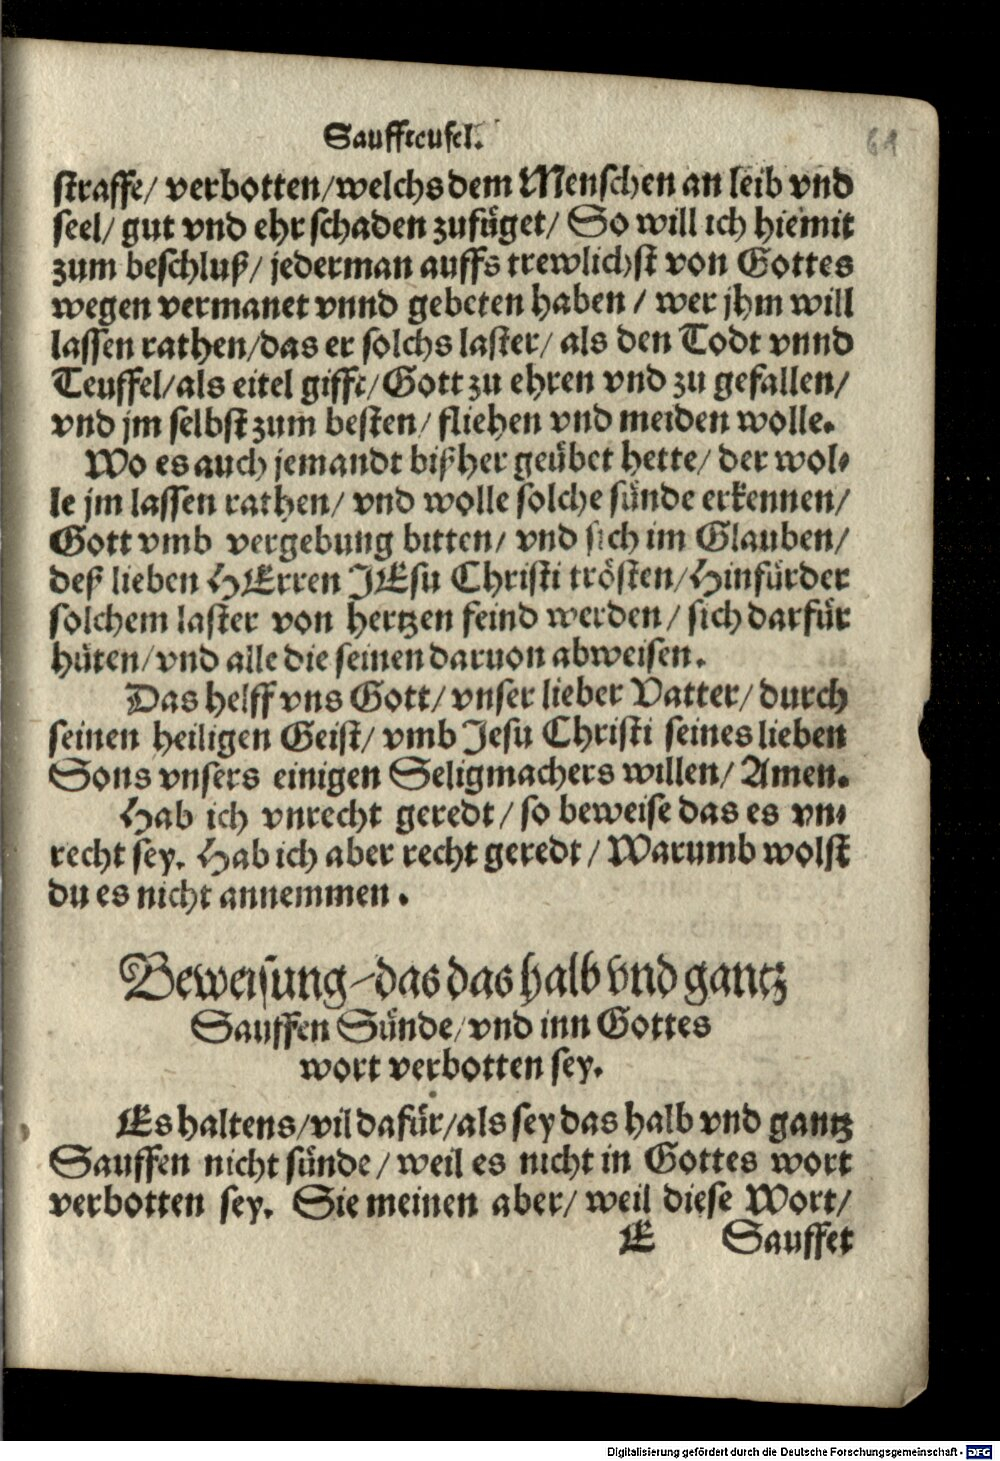 Sauffteufel.
61
straffe/ verbotten/welchs dem Menschen an leib vnd
seel/ gut vnd ehr schaden zufüget/ So will ich hiemit
zum beschluß/ jederman auffs trewlichst von Gottes
wegen vermanet vnnd gebeten haben / wer jhm will
lassen rathen/das er solchs laster/ als den Todt vnnd
Teuffel/als eitel gifft/Gott zu ehren vnd zu gefallen/
vnd jm selbst zum besten/ fliehen vnd meiden wolle.
Wo es auch jemandt bißher geübet hette/ der wol-
le jm lassen rathen/ vnd wolle solche sünde erkennen/
Gott vmb vergebung bitten/ vnd sich im Glauben/
deß lieben HErren JEsu Christi trösten/Hinfürder
solchem laster von hertzen feind werden/ sich darfür
hüten/vnd alle die seinen daruon abweisen.
Das helff vns Gott/ vnser lieber Vatter/ durch
seinen heiligen Geist/ vmb Jesu Christi seines lieben
Sons vnsers einigen Seligmachers willen/ Amen.
Hab ich vnrecht geredt/ so beweise das es vn-
recht sey. Hab ich aber recht geredt / Warumb wolst
du es nicht annemmen.
Beweisung/das das halb vnd gantz
Sauffen Sünde/vnd inn Gottes
wort verbotten sey.
Es haltens/vil dafür/als sey das halb vnd gantz
Sauffen nicht sünde/ weil es nicht in Gottes wort
verbotten sey. Sie meinen aber/ weil diese Wort/
E Sauffet
Digitalisierung gefördert durch die Deutsche Forschungsgemeinschaft - DFG